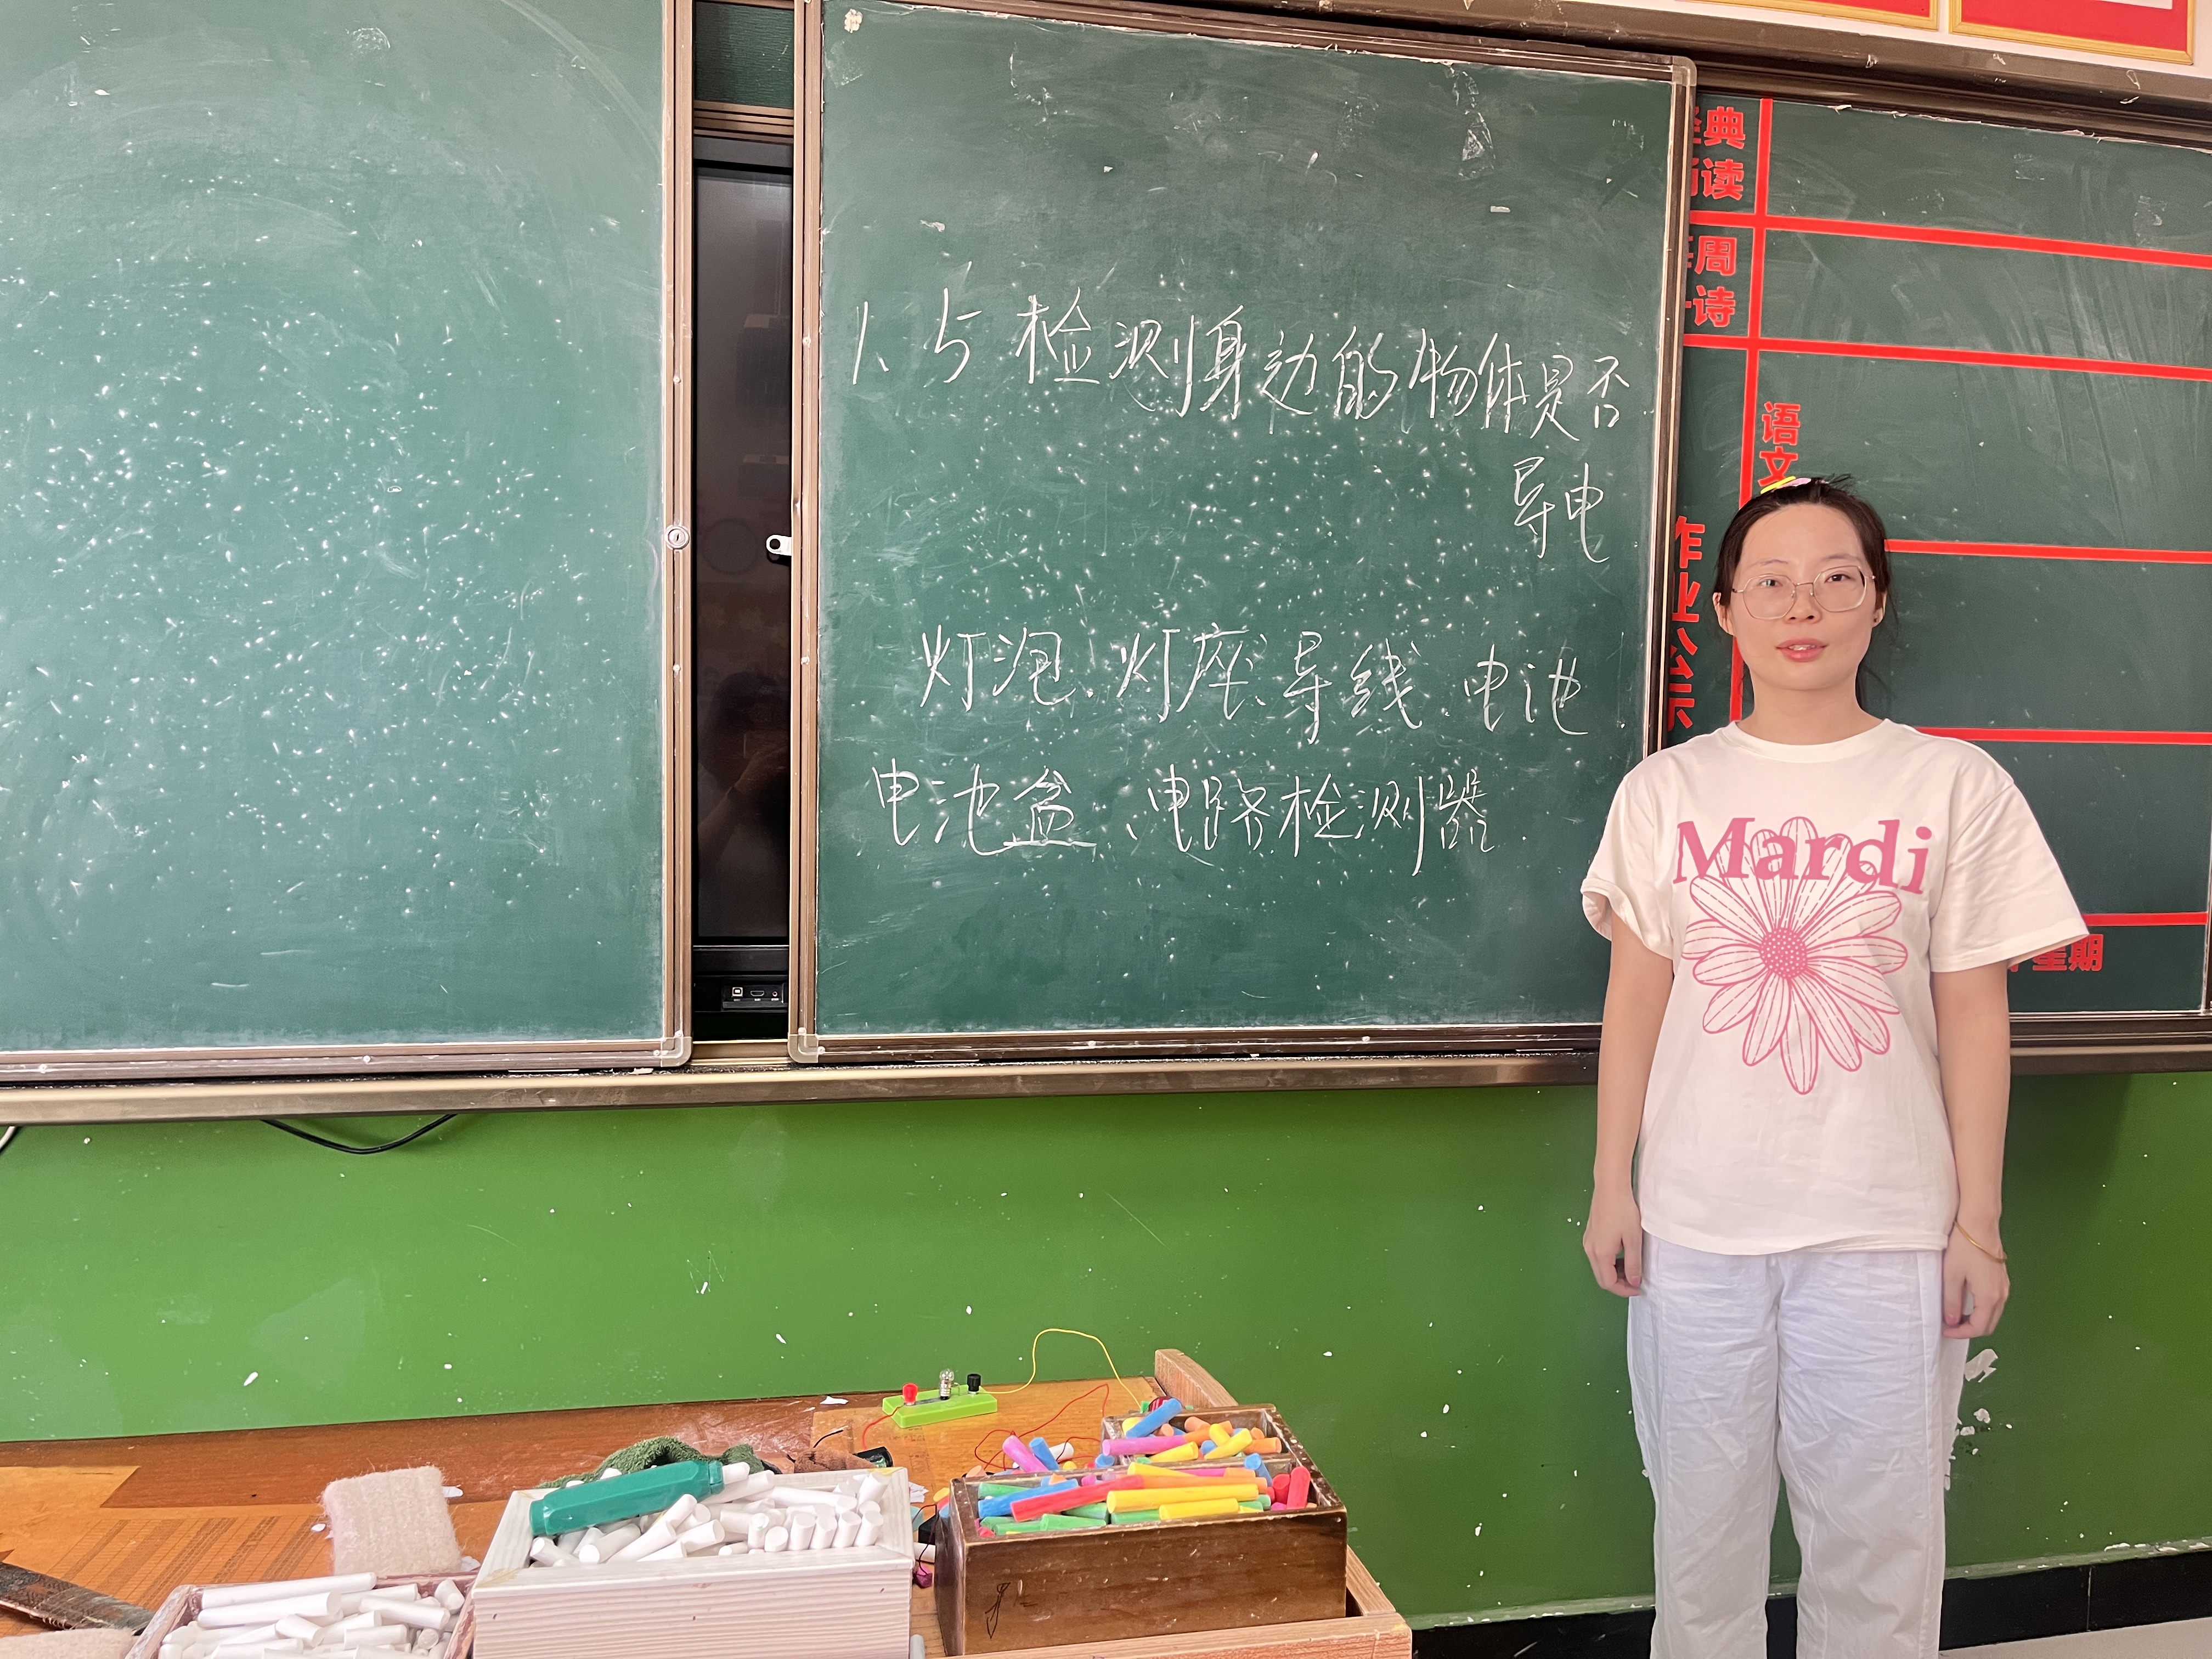 1、与检测身边的物体是否
导电
灯泡、灯座、导线、电池、
电池盒、电路检测器
典
读
周
诗
语
文
作
业
公
示
星期
Mardi